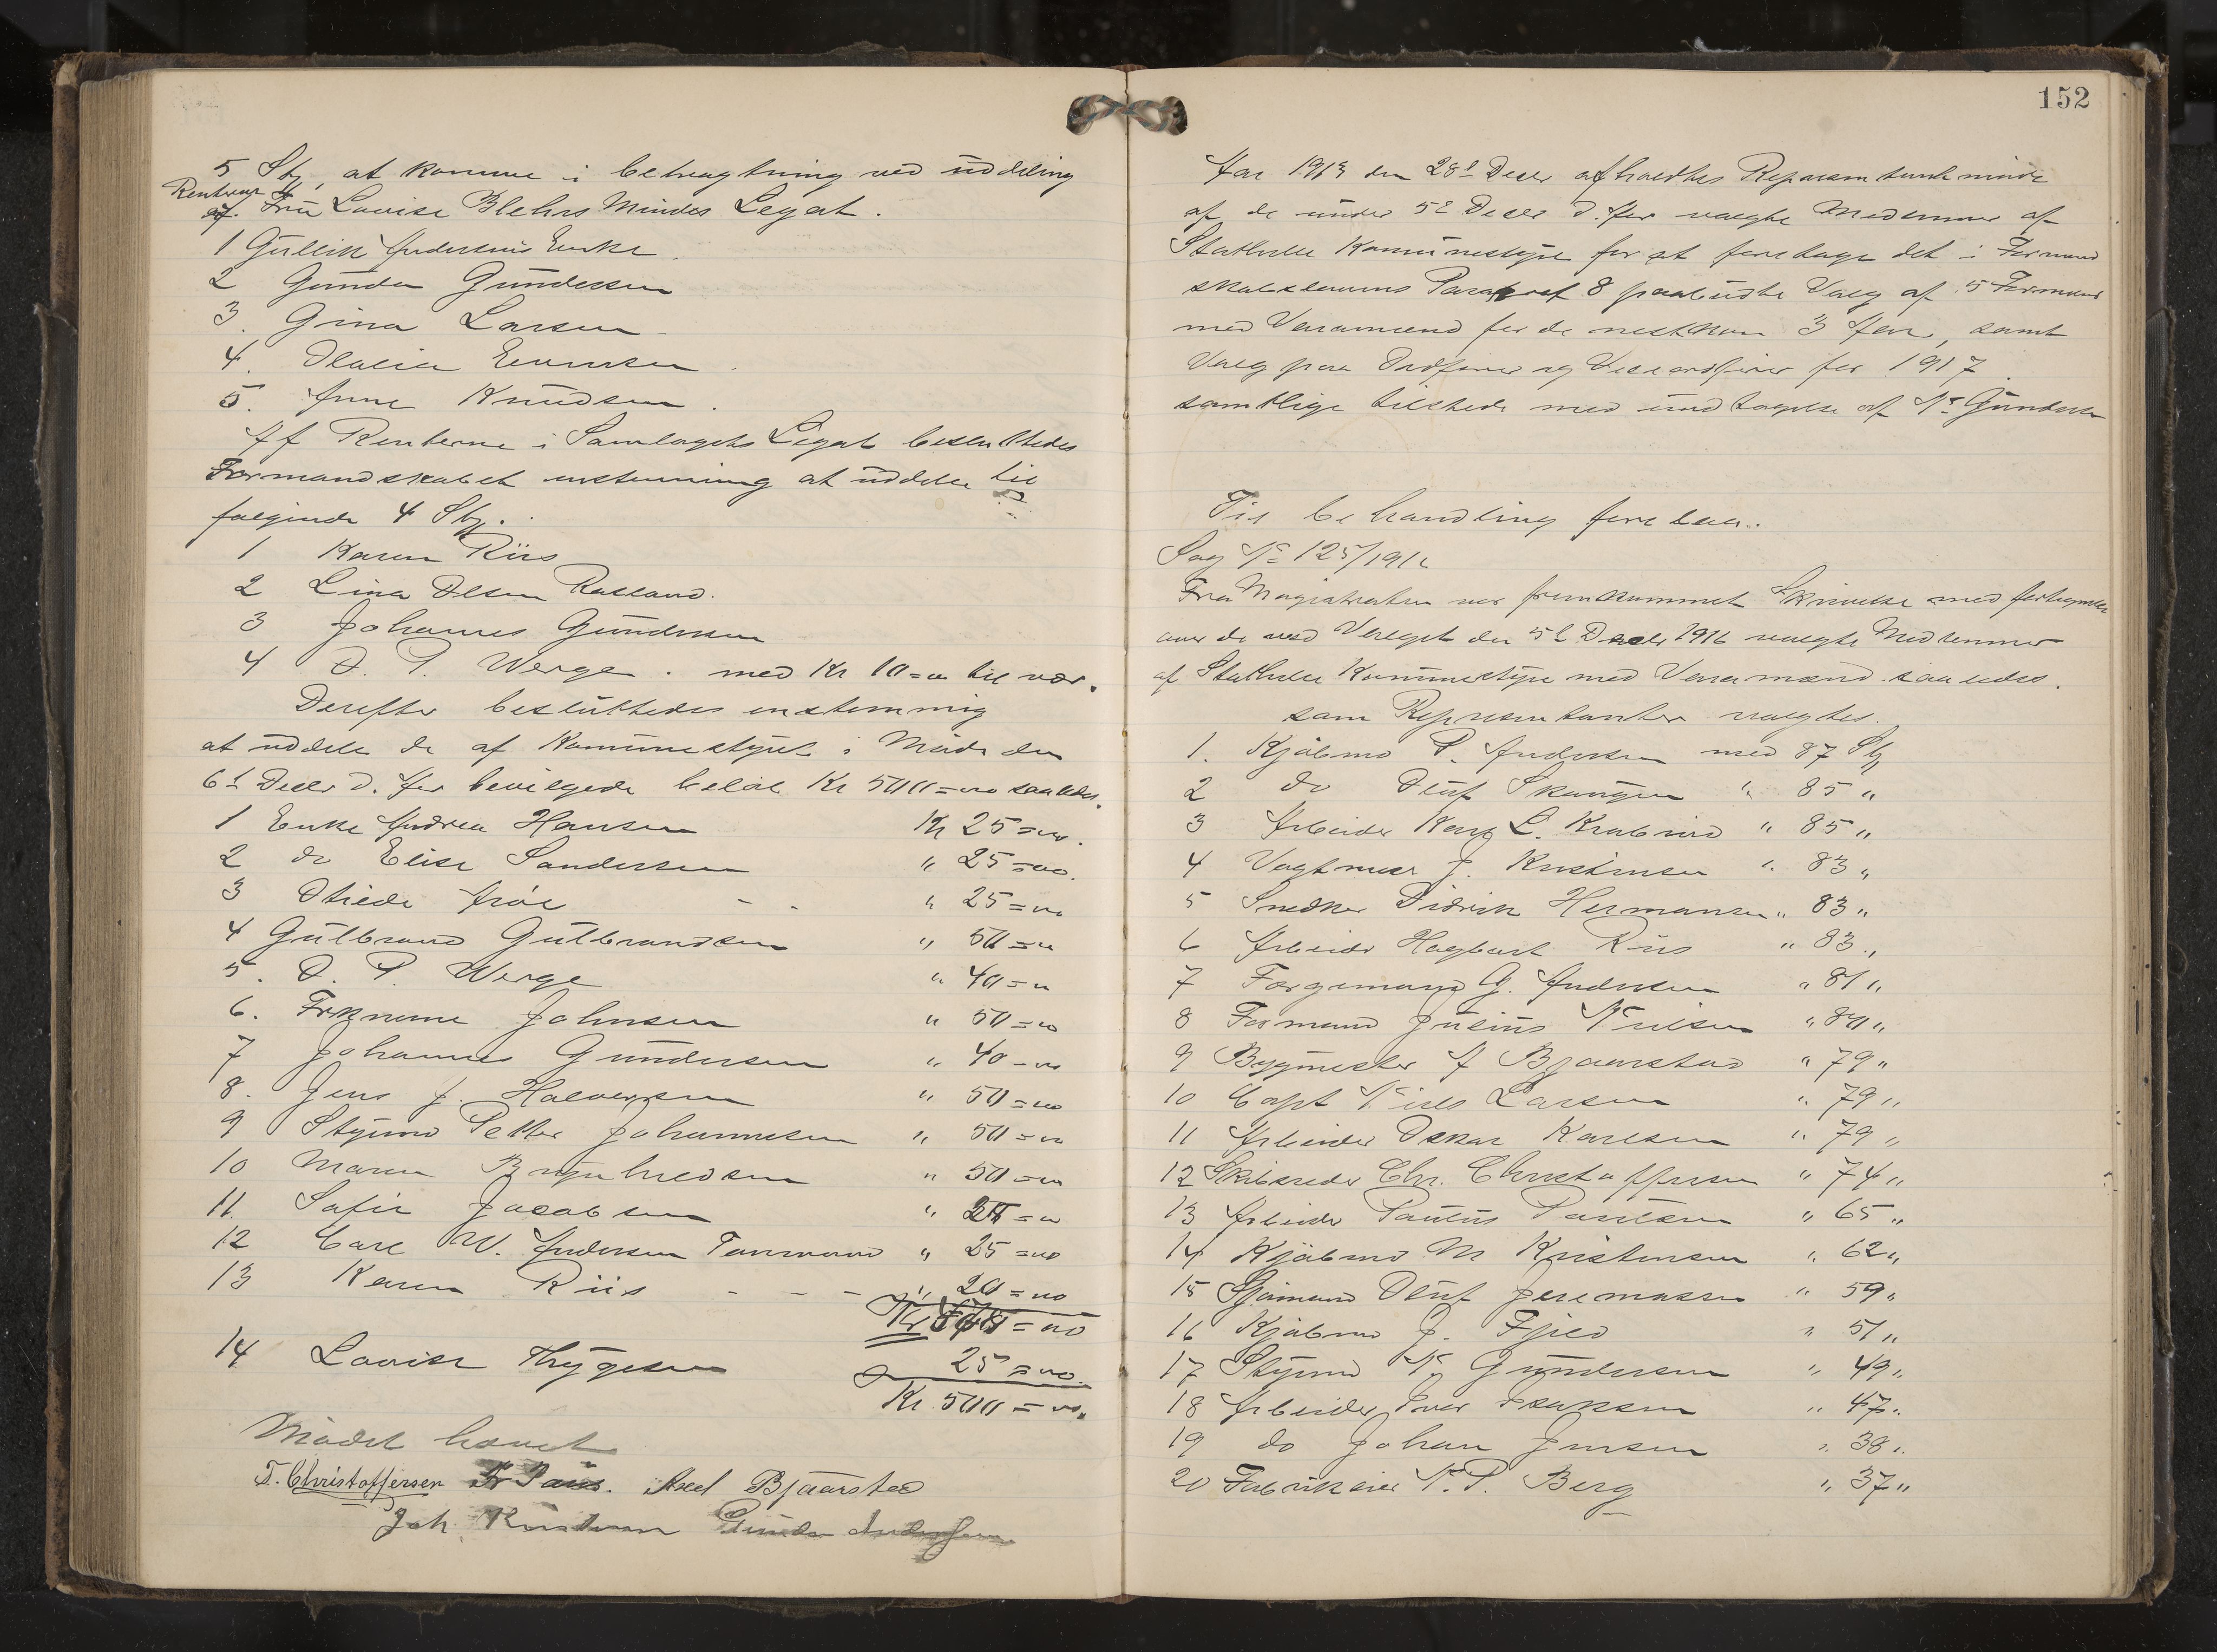 5 Stk, at komme i betragtning ved uddeling
Renterne
af Fru Louise Blehrs Mindes Legat.
1 Gullik Andersens Enke
2 Gunda Gundersen
3. Gina Larsen
4. Olalia Evensen
5. Anne Knudsen
Af Renterne i Samlagets Legat besluttedes
Formandskabet enstemmig at uddele til
følgende 4 Stk.
1 Karen Riis
2 Lina Olsen Rasland.
3 Johannes Gundersen
4 O. P. Werge. med Kr 10=00 til vær.
Derefter besluttedes enstemmig
at uddele de af Kommunestyret i Møde den
6te Decbr d. Aar bevilgede beløb Kr 500=00 saaledes.
1 Enke Andrea Hansen Kr 25=00.
2 do Elise Sandersen " 25=00.
3 Otilde Arøe - - " 25=00
4 Gulbrand Gulbrandsen " 50=00
5. O. P. Werge " 40=00
6. Johnsen " 50=00
7 Johannes Gundersen " 40=00
8. Jens J. Halvorsen " 50=00
9 Styrmd Petter Johannesen " 50=00
10 Maren Brynhildsen " 50=00
11. Sofie Jacobsen " =00
12 Carl W. Andersen Tanmand " 25=00
13 Karen Riis - - - " 20=00
Kr =00
14 Lovise Thygesen 25=00.
Kr. 500=00.
Mødet hævet
T. Christoffersen Axel Bjaarstad
Joh. Kristensen Gunder Andersen
152
Aar 1916 den 28de Decbr afholdtes Repræsentantmøde
af de under 5te Decbr d. Aar valgte Medlemmer af
Stathelle Kommunestyre for at foretage det i Formand
skabslovens Paragraf 8 paabudte Valg af 5 Formænd
med Varamænd for de nestkom 3 Aar, samt
Valg paa Ordfører og Viseordfører for 1917.
samtlige tilstede med undtagelse af N. Gundersen
Til behandling forelaa.
Sag No 125/1916
Fra Magistraten var fremkommet Skrivelse med fortegnelse
over de ved Valget den 5te Decbr 1916 valgte Medlemmer
af Stathelle Kommunestyre med Varamænd saaledes.
som Repræsentanter valgtes.
1. Kjøbmd P. Andersen med 87 Stk
2 do Oluf Skaugen " 85 "
3 Arbeider Karl L. Krabmo " 85 "
4 Vagtmest J. Kristensen " 83 "
5 Snedker Didrik Hermansen " 83 "
6 Arbeider Hagbart Riis " 83 "
7 Færgemand G. Andersen " 81 "
8 Formand Julius Nielsen " 80 "
9 Bygmester A Bjaarstad " 79 "
10 Capt Nils Larsen " 79 "
11 Arbeider Oskar Karlsen " 79 "
12 Skibsreder Chr. Christoffersen " 74 "
13 Arbeider Paulus Paulsen " 65 "
14 Kjøbmd M Kristensen " 62 "
15 Sjømand Oluf Jeremiassen " 59 "
16 Kjøbmd J. Fjeld " 51 "
17 Styrmd N. Gundersen " 49 "
18 Arbeider Iver Isaksen " 47 "
19 do Johan Jensen " 38 "
20 Fabrikeier N. P. Berg " 37 "